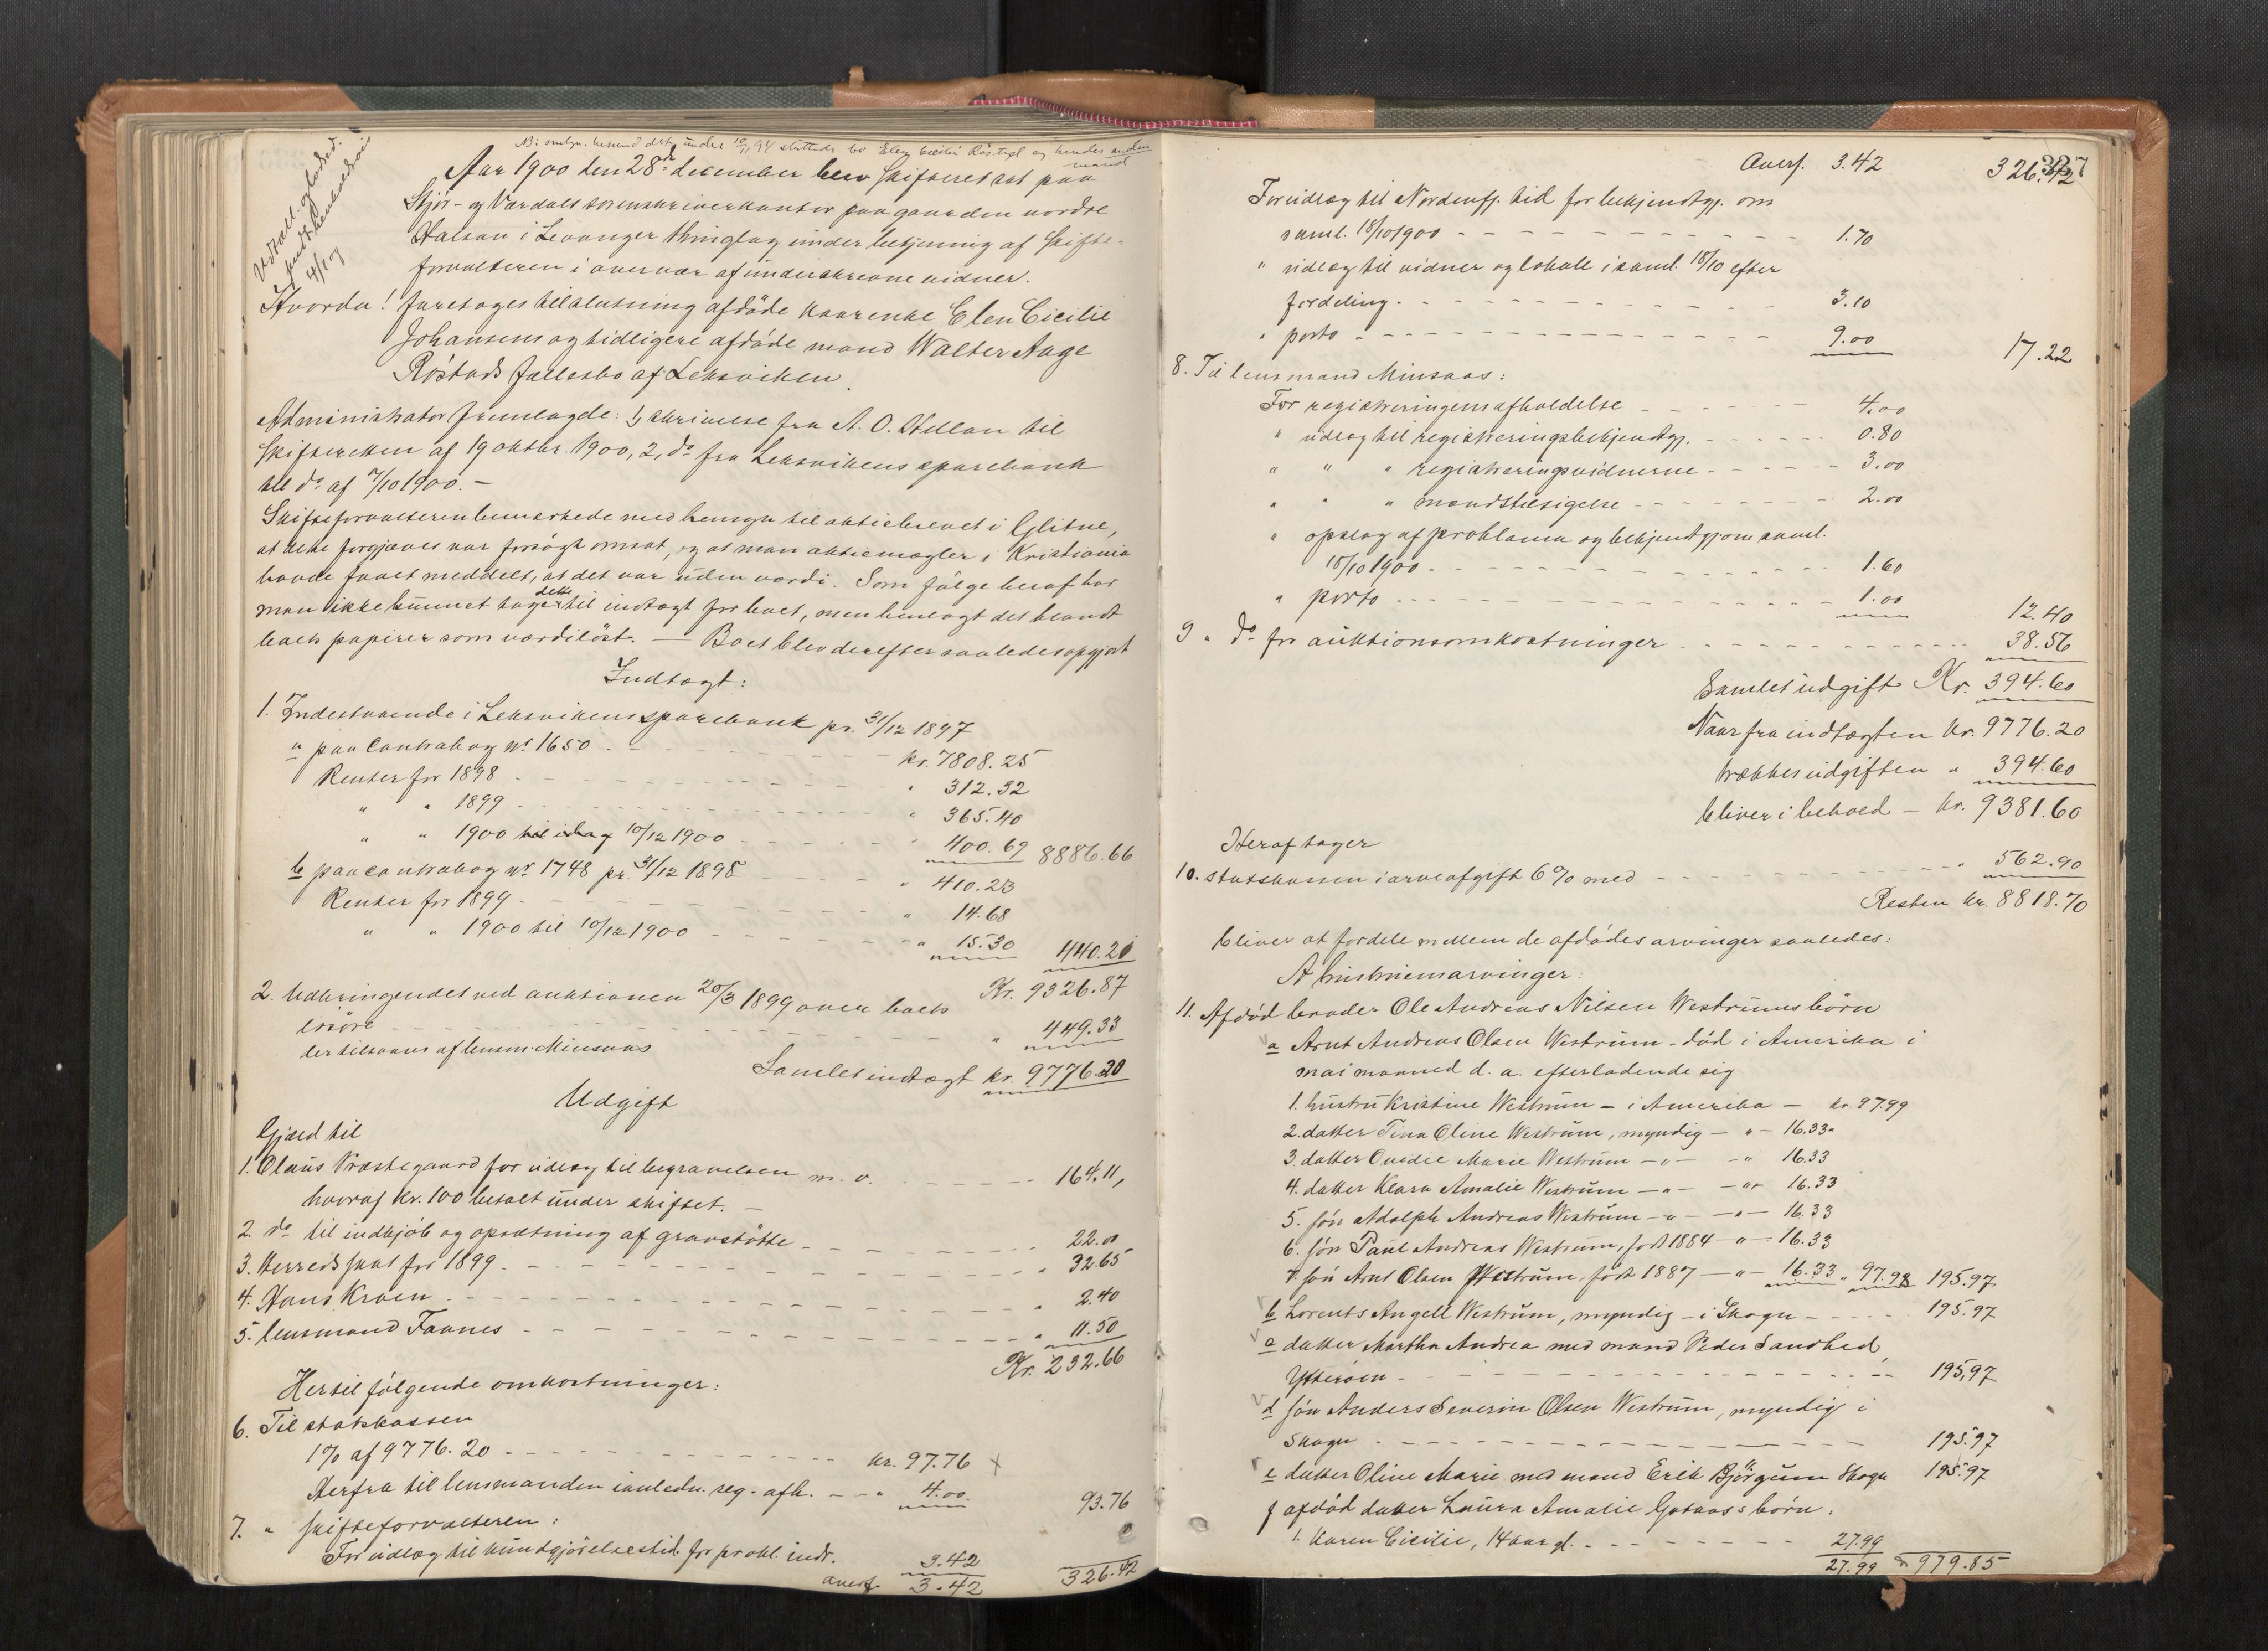 Aar 1900 den 28de december blev skifteret sat paa
Stjør- og Værdals sorenskriverkontor paa gaarden nordre
Halsan i Levanger thinglag under betjening af skifte-
forvalteren i overvær af underskrevne vidner.
Hvorda! foretoges til slutning afdøde kaarenke Elen Cicilie
Johansens og tidligere afdøde mand Walter Aage
Røstads fællesbo af Leksviken.
Administrator fremlagde: 1, skrivelse fra A. O. Hellan til
skifteretten af 19 oktbr. 1900, 2, do fra Leksvikens sparebank
alt do af 7/10 1900. –
Skifteforvalteren bemærkede med hensyn til aktiebrevet i Glitne,
at dette forgjæves var forsøgt omsat, og at man aktiemægler i Kristiania
havde faaet meddelt, at det var uden værdi. Som følge heraf har
man ikke kunnet tage dette til indtægt for boet, men henlagt det blandt
boets papirer som værdiløst. – Boet blev derefter saaledes opgjort
Indtægt:
1. Indestaaende i Leksvikens sparebank pr. 31/12 1897
a paa contrabog No 1650 kr. 7808.25
Renter for 1898 " 312.32
" " 1899 " 365.40
" " 1900 til idag 10/12 1900 " 400.69 8886.66
b paa contrabog No 1748 pr. 31/12 1898 " 410.23
Renter for 1899 " 14.68
" " 1900 til 10/12 1900 " 15.30 440.21
Kr. 9326.87
2. Udbringendet ved auktionen 20/3 1899 over boets
løsøre " 449.33
der tilsvares af lensm. Minsaas
Samlet indtægt kr. 9776.20
Udgift
Gjæld til
1. Olaus Præstegaard for udlæg til begravelsen m. v. 164.11,
hvoraf kr. 100 betalt under skiftet. –
2. do til indkjøb og opsætning af gravstøtte 22.00
3. Herredsskat for 1899 " 32.65
4. Hans Kroen " 2.40
5. lensmand Faanes " 11.50
Kr. 232.66
Hertil følgende omkostninger:
6. Til statskassen
1% af 9776.20 kr. 97.76
Herfra til lensmanden i anledn. reg. afh. " 4.00 93.76
7. " skifteforvalteren:
For udlæg til kundgjørelsestid. for prokl. indr. 3.42
overf. 3.42 326.42
Overf. 3.42 326.42
327
For udlæg til Nordenfj. tid for bekjendtgj. om
saml. 18/10 1900 1.70
" udlæg til vidner og lokale i saml. 18/10 efter
fordeling 3.10
" porto 9.00 17.22
8. Til lensmand Minsaas:
For registreringens afholdelse 4.00
" udlæg til registreringsbekjendtgj. 0.80
" " " registreringsvidnerne 3.00
" " " mandstilsigelse 2.00
" opslag af proklama og bekjendtgj. om saml.
18/10 1900 1.60
" porto 1.00 12.40
9 " do for auktionsomkostninger 38.56
Samlet udgift Kr. 394.60
Naar fra indtægten kr. 9776.20
trækkes udgiften " 394.60
bliver i behold – kr. 9381.60
Heraf tager
10. statskassen i arveafgift 6% med " 562.90
Resten kr. 8818.70
bliver at fordele mellem de afdødes arvinger saaledes:
A hustruens arvinger:
11. Afdød broder Ole Andreas Nilsen Westrums børn
a Arnt Andreas Olsen Westrum – død i Amerika i
mai maaned d. a. efterladende sig
1. hustru Kristine Westrum – i Amerika – kr. 97.99
2. datter Tina Oline Westrum, myndig – " – 16.33
3. datter Ovidie Marie Westrum – " – – " 16.33
4. datter Klara Amalie Westrum – " – – " – 16.33
5. søn Adolph Andreas Westrum – " – – " – 16.33
6. søn Paul Andreas Westrum, født 1884 – " – 16.33
7. søn Arnt Olsen Westrum født 1887 – " – 16.33 " 97.98 195.97
b Lorents Angell Westrum, myndig – i Skogn – 195.97
c datter Martha Andrea med mand Peder Sandhed,
Ytterøen 195,97
d søn Anders Severin Olsen Westrum, myndig i
Skogn 195.97
e datter Oline Marie med mand Erik Bjørgum Skogn 195.97
f afdød datter Laura Amalie Gotaas's børn:
1. Karen Cicilie, 14 aar gl. 27.99
27.99 979.85